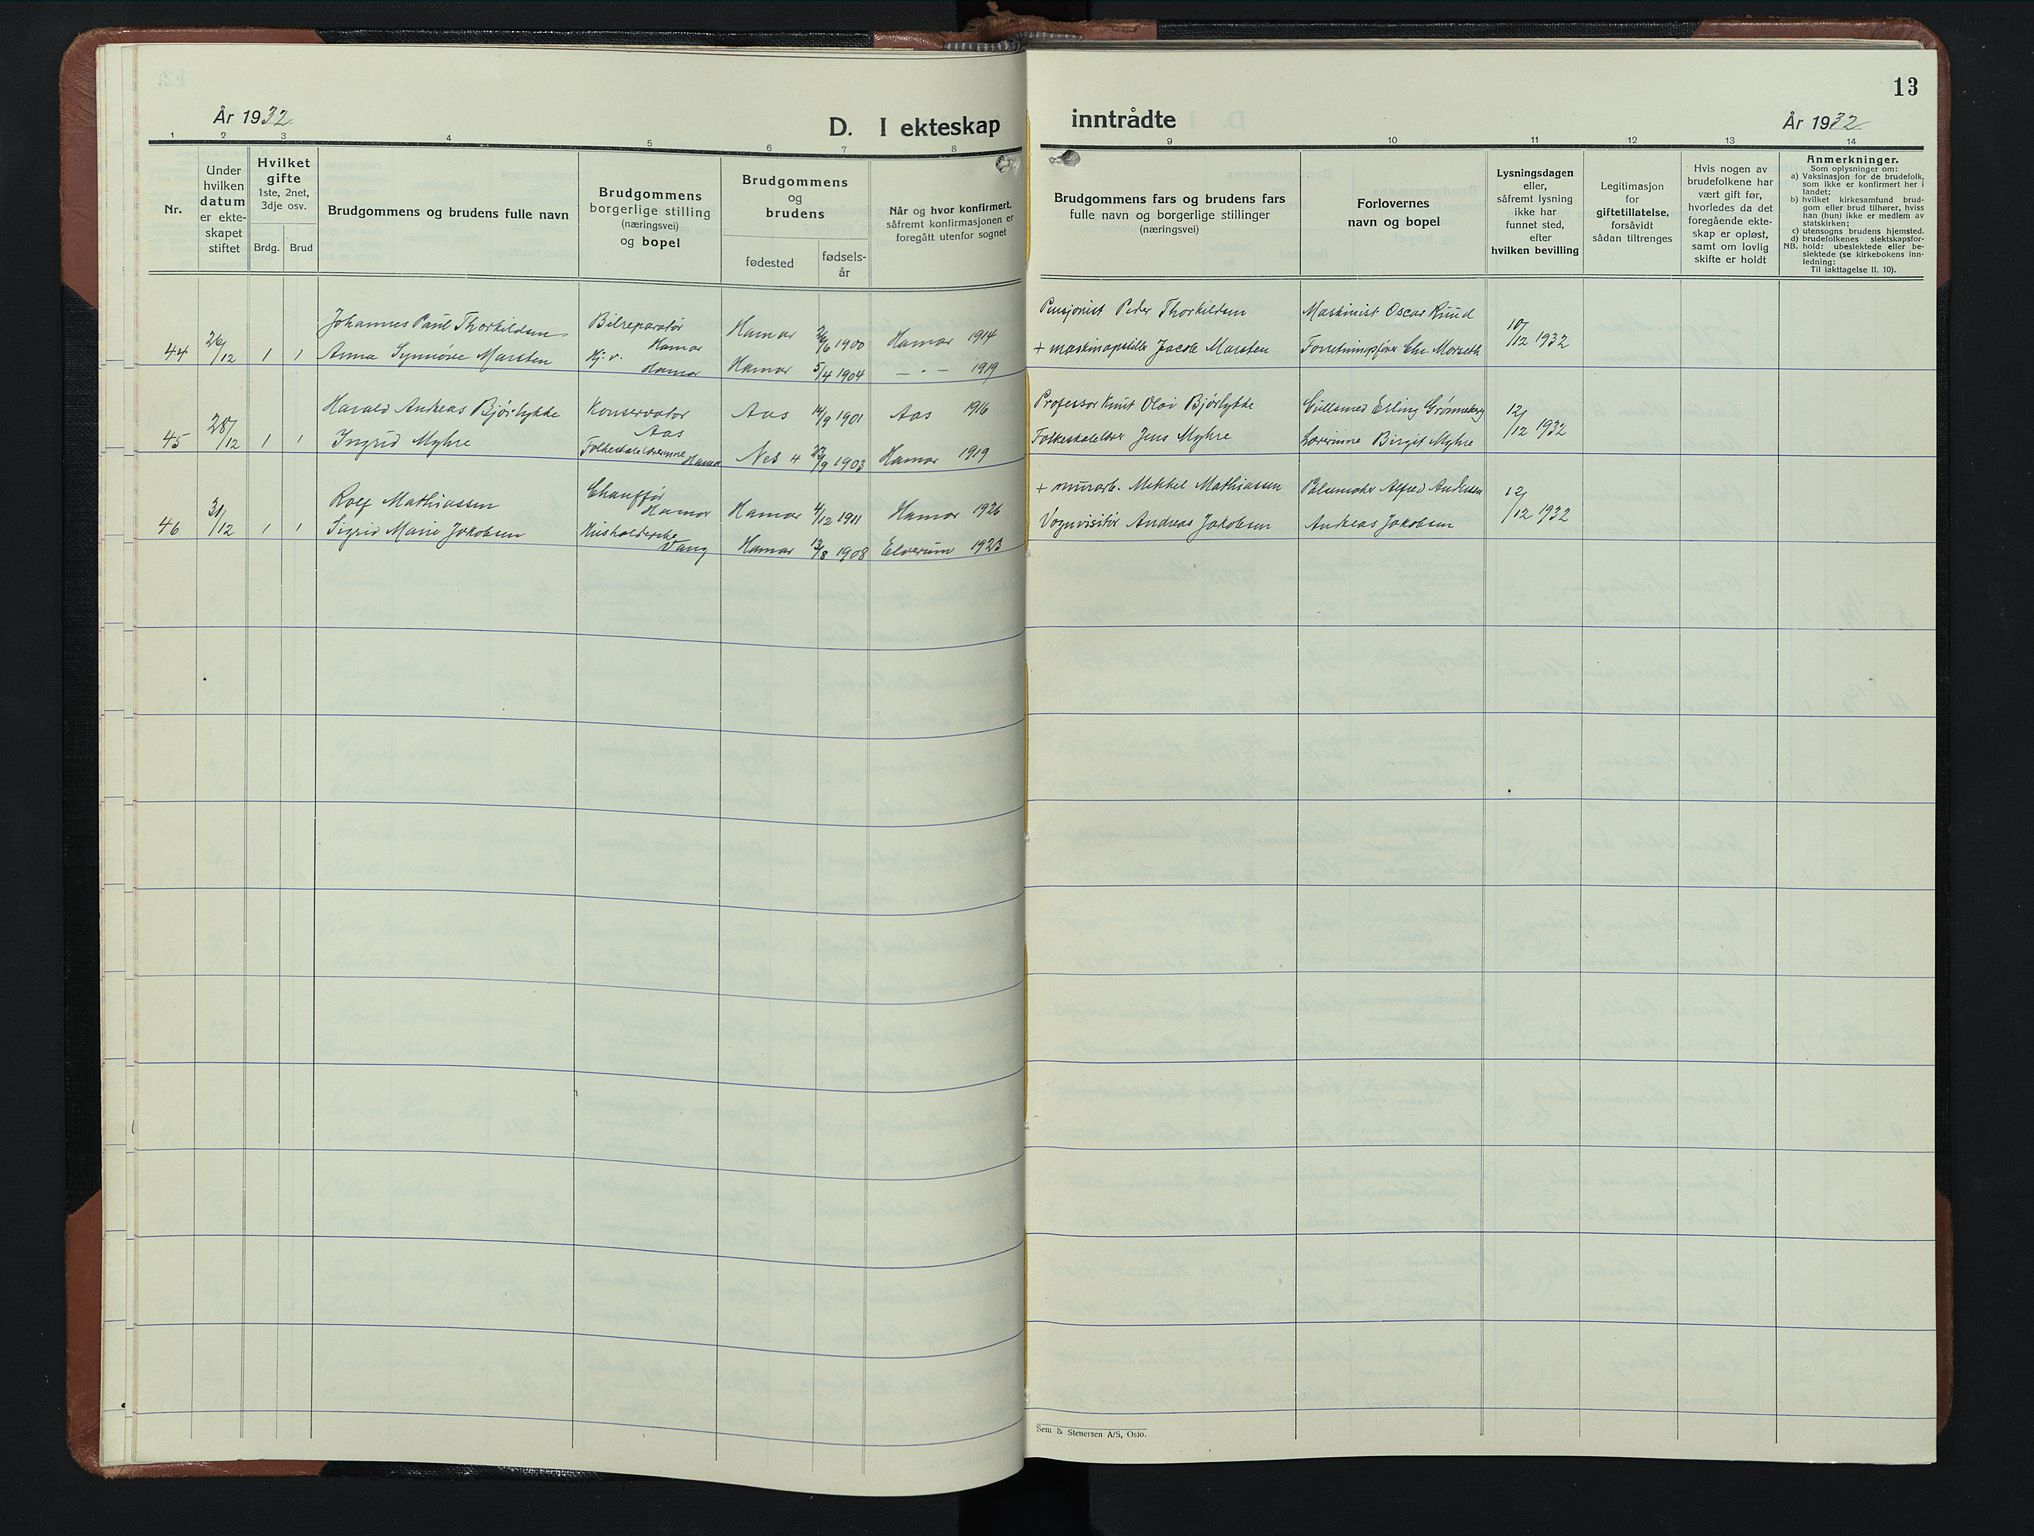 13
År 1932
D. I ekteskap
inntrådte
År 1932
1 2 3 4 5 6 7 8 9 10 11 12 13 14
Nr.
Under
hvilken
datum
er ekte-
skapet
stiftet
Hvilket
gifte
1ste, 2net,
3dje osv.
Brdg. Brud
Brudgommens og brudens fulle navn
Brudgommens
borgerlige stilling
(næringsvei)
og bopel
Brudgommens
og
brudens
fødested
fødsels-
år
Når og hvor konfirmert,
såfremt konfirmasjonen er
foregått utenfor sognet
Brudgommens fars og brudens fars
fulle navn og borgerlige stillinger
(næringsvei)
Forlovernes
navn og bopel
Lysningsdagen
eller,
såfremt lysning
ikke har
funnet sted,
efter
hvilken bevilling
Legitimasjon
for
giftetillatelse,
forsåvidt
sådan tiltrenges
Hvis nogen av
brudefolkene har
vært gift før,
hvorledes da det
foregående ekte-
skap er opløst,
samt om lovlig
skifte er holdt
Anmerkninger.
Som oplysninger om:
a) Vaksinasjon for de brudefolk,
som ikke er konfirmert her i
landet;
b) hvilket kirkesamfund brud-
gom eller brud tilhører, hviss
han (hun) ikke er medlem av
statskirken;
c) utensogns brudens hjemsted.
d) brudefolkenes slektskapsfor-
hold: ubeslektede eller be-
slektede (se kirkebokens inn-
ledning:
NB.
Til iakttagelse II. 10).
Johannes Paul Thorkildsen Bilreparatør Hamar Hamar 26/6 1900 Hamar 1914 Pensjonist Peder Thorkildsen Maskinist Oscar Ruud
44 26/12 1 1 Anna Synnøve Marsten Hj. v. Hamar Hamar 5/4 1904 — " — 1919 + maskinopstiller Jacob Marsten Forretningsfører Chr. Morseth 10/12 1932
Harald Andreas Bjørlykke Konservator Aas Aas 14/9 1901 Aas 1916 Professor Knut Olai Bjørlykke Gullsmed Erling Grønneberg
45 28/12 1 1 Ingrid Myhre Folkeskolelærerinne Hamar Nes H 22/9 1903 Hamar 1919 Folkeskolelærer Jens Myhre Lærerinne Birgit Myhre 12/12 1932
Rolf Mathiassen Chauffør Hamar Hamar 4/12 1911 Hamar 1926 + murarb. Mekkel Mathiassen Pølsemaker Alfred Andersen
46 31/12 1 1 Sigrid Marie Jakobsen Husholderske Vang Hamar 13/8 1908 Elverum 1923 Vognvisitør Andreas Jakobsen Andreas Jakobsen 12/12 1932
Sem & Stenersen A/S, Oslo.